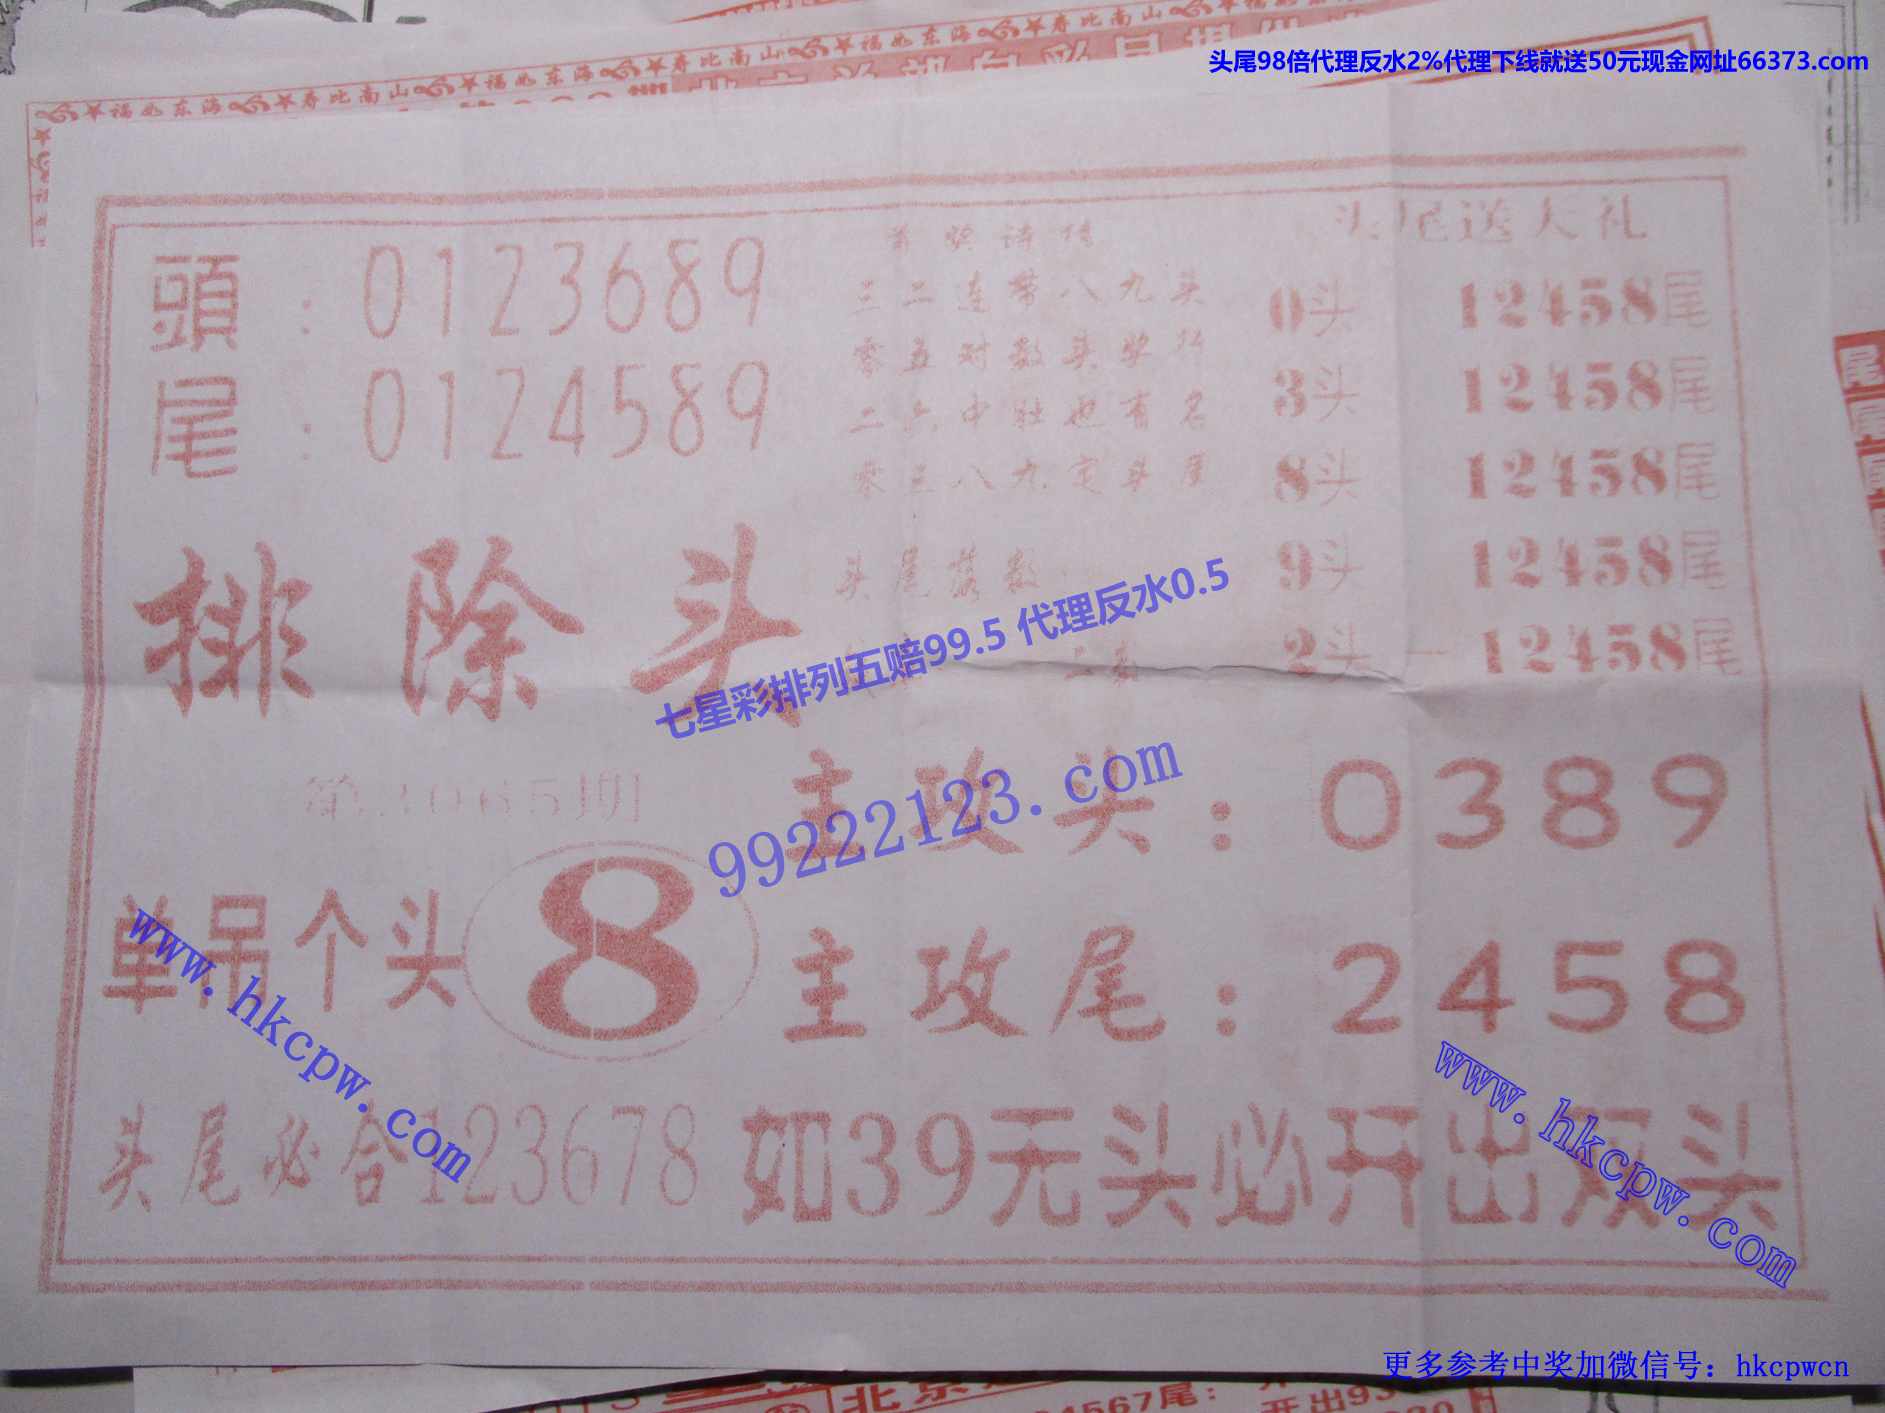 福如东海 寿比南山 福如东海 寿比南山 福如东海 寿比南山
头尾98倍代理反水2%代理下线就送50元现金网址66373.com
頭：0123689
尾：0124589
三二连带八九头
零五对数头奖行
二六中肚也有名
零三八九定头尾
头尾落数
二数
头尾送大礼
0头 12458尾
3头 12458尾
8头 12458尾
9头 12458尾
2头一12458尾
排除头
七星彩排列五赔99.5 代理反水0.5
99222123.com
065期
主攻头：0389
单吊个头 8
主攻尾：2458
www.hkcpw.com
www.hkcpw.com
头尾必合123678
如39无头必开出双头
更多参考中奖加微信号：hkcpwcn
北京
4567尾：
开出93